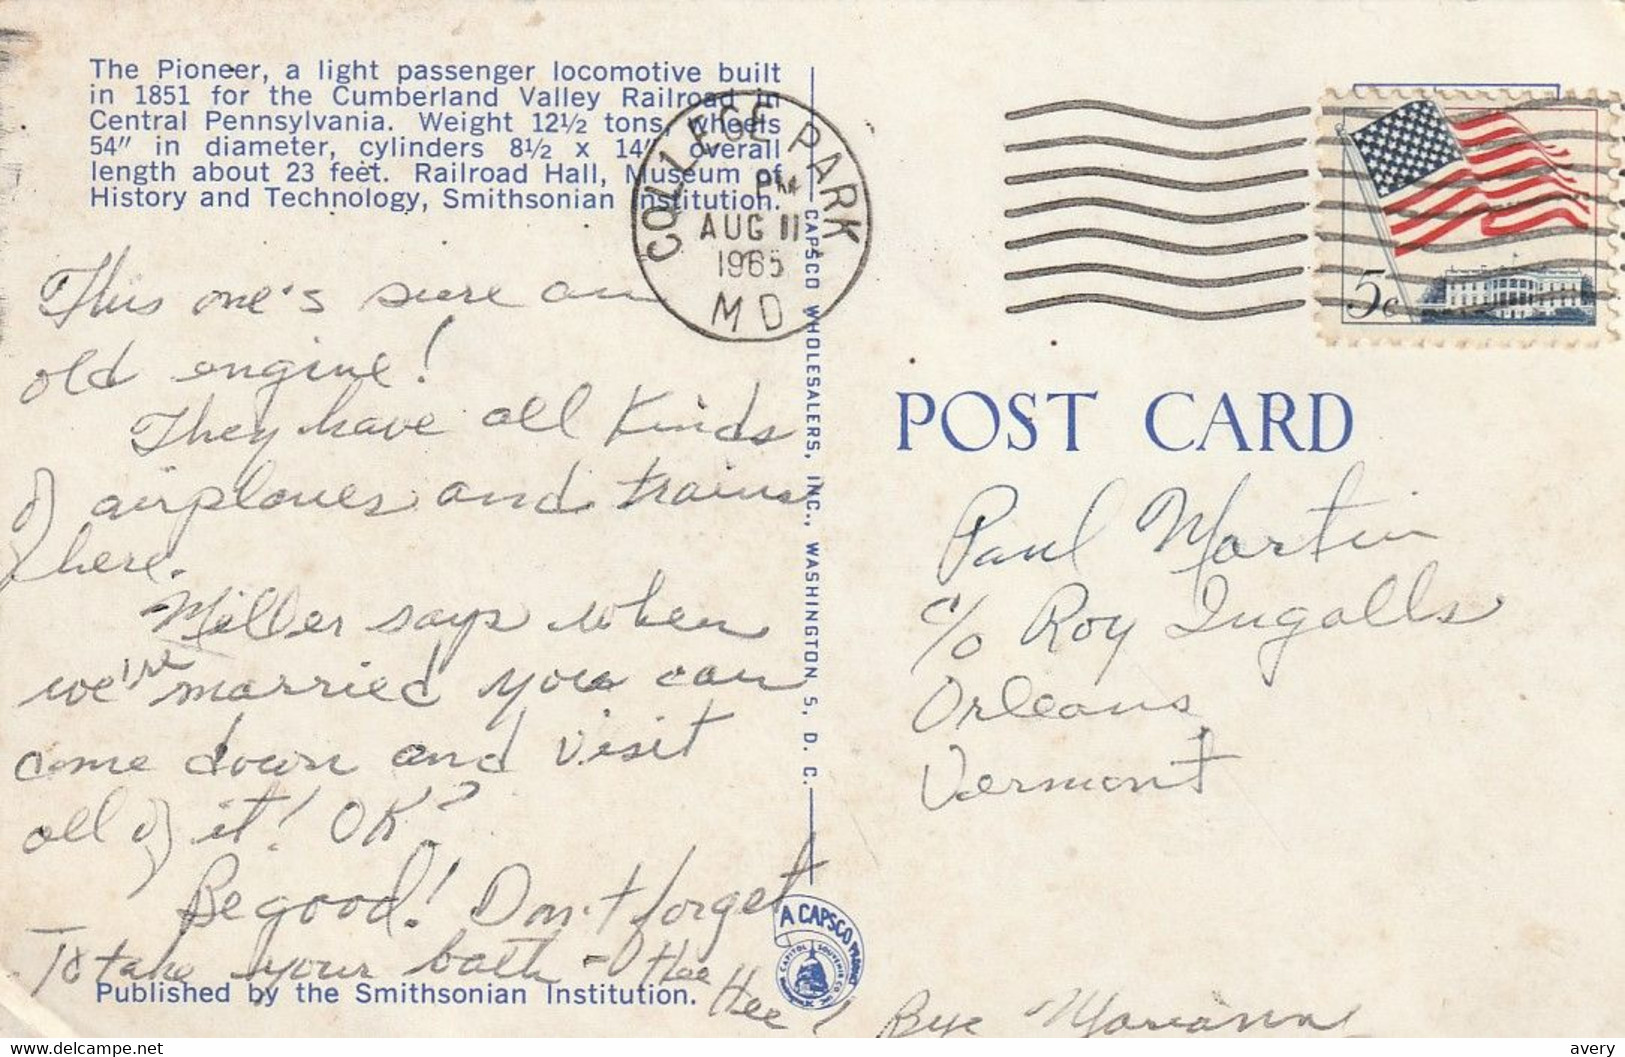 The Pioneer, a light passenger locomotive built
in 1851 for the Cumberland Valley Railroad in
Central Pennsylvania. Weight 12½ tons, wheels
54" in diameter, cylinders 8½ x 14" overall
length about 23 feet. Railroad Hall, Museum of
History and Technology, Smithsonian Institution.
This one's sure an
old engine!
They have all kinds
of airplanes and trains
here.
Miller says when
we're married you can
come down and visit
all of it! OK?
Be good! Don't forget
To take your bath - Hee
Hee!
Bye Marianne
Published by the Smithsonian Institution.
COLLEGE PARK
PM
AUG 11
1965
MD
CAPSCO WHOLESALERS, INC., WASHINGTON 5, D. C.
A CAPSCO PRODUCT
CAPITOL SOUVENIR CO
5c
POST CARD
Paul Martin
c/o Roy Ingalls
Orleans
Vermont
https://www.delcampe.net
avery